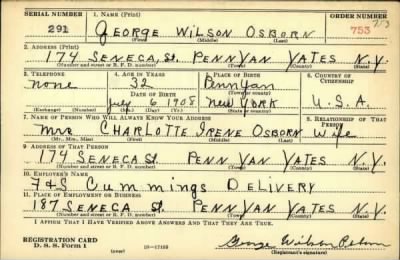 SERIAL NUMBER 1. NAME (Print) ORDER NUMBER
291 GEORGE WILSON OSBORN 753
(First) (Middle) (Last)
2. ADDRESS (Print)
174 SENECA St. PENN YAN YATES N.Y.
(Number and street or R. F. D. number) (Town) (County) (State)
3. TELEPHONE 4. AGE IN YEARS 5. PLACE OF BIRTH 6. COUNTRY OF CITIZENSHIP
none 32 Penn Yan
DATE OF BIRTH (Town or county)
July 6 1908 NEW YORK U.S.A.
(Exchange) (Number) (Mo.) (Day) (Yr.) (State or country)
7. NAME OF PERSON WHO WILL ALWAYS KNOW YOUR ADDRESS 8. RELATIONSHIP OF THAT PERSON
Mrs CHARLOTTE IRENE OSBORN Wife
(Mr., Mrs., Miss) (First) (Middle) (Last)
9. ADDRESS OF THAT PERSON
174 SENECA St. PENN YAN YATES N.Y.
(Number and street or R. F. D. number) (Town) (County) (State)
10. EMPLOYER'S NAME
F&S Cummings DELIVERY
11. PLACE OF EMPLOYMENT OR BUSINESS
187 SENECA St. PENN YAN YATES N.Y.
(Number and street or R. F. D. number) (Town) (County) (State)
I AFFIRM THAT I HAVE VERIFIED ABOVE ANSWERS AND THAT THEY ARE TRUE.
REGISTRATION CARD
D. S. S. Form 1 (over) 16-17105 George Wilson Osborn
(Registrant's signature)